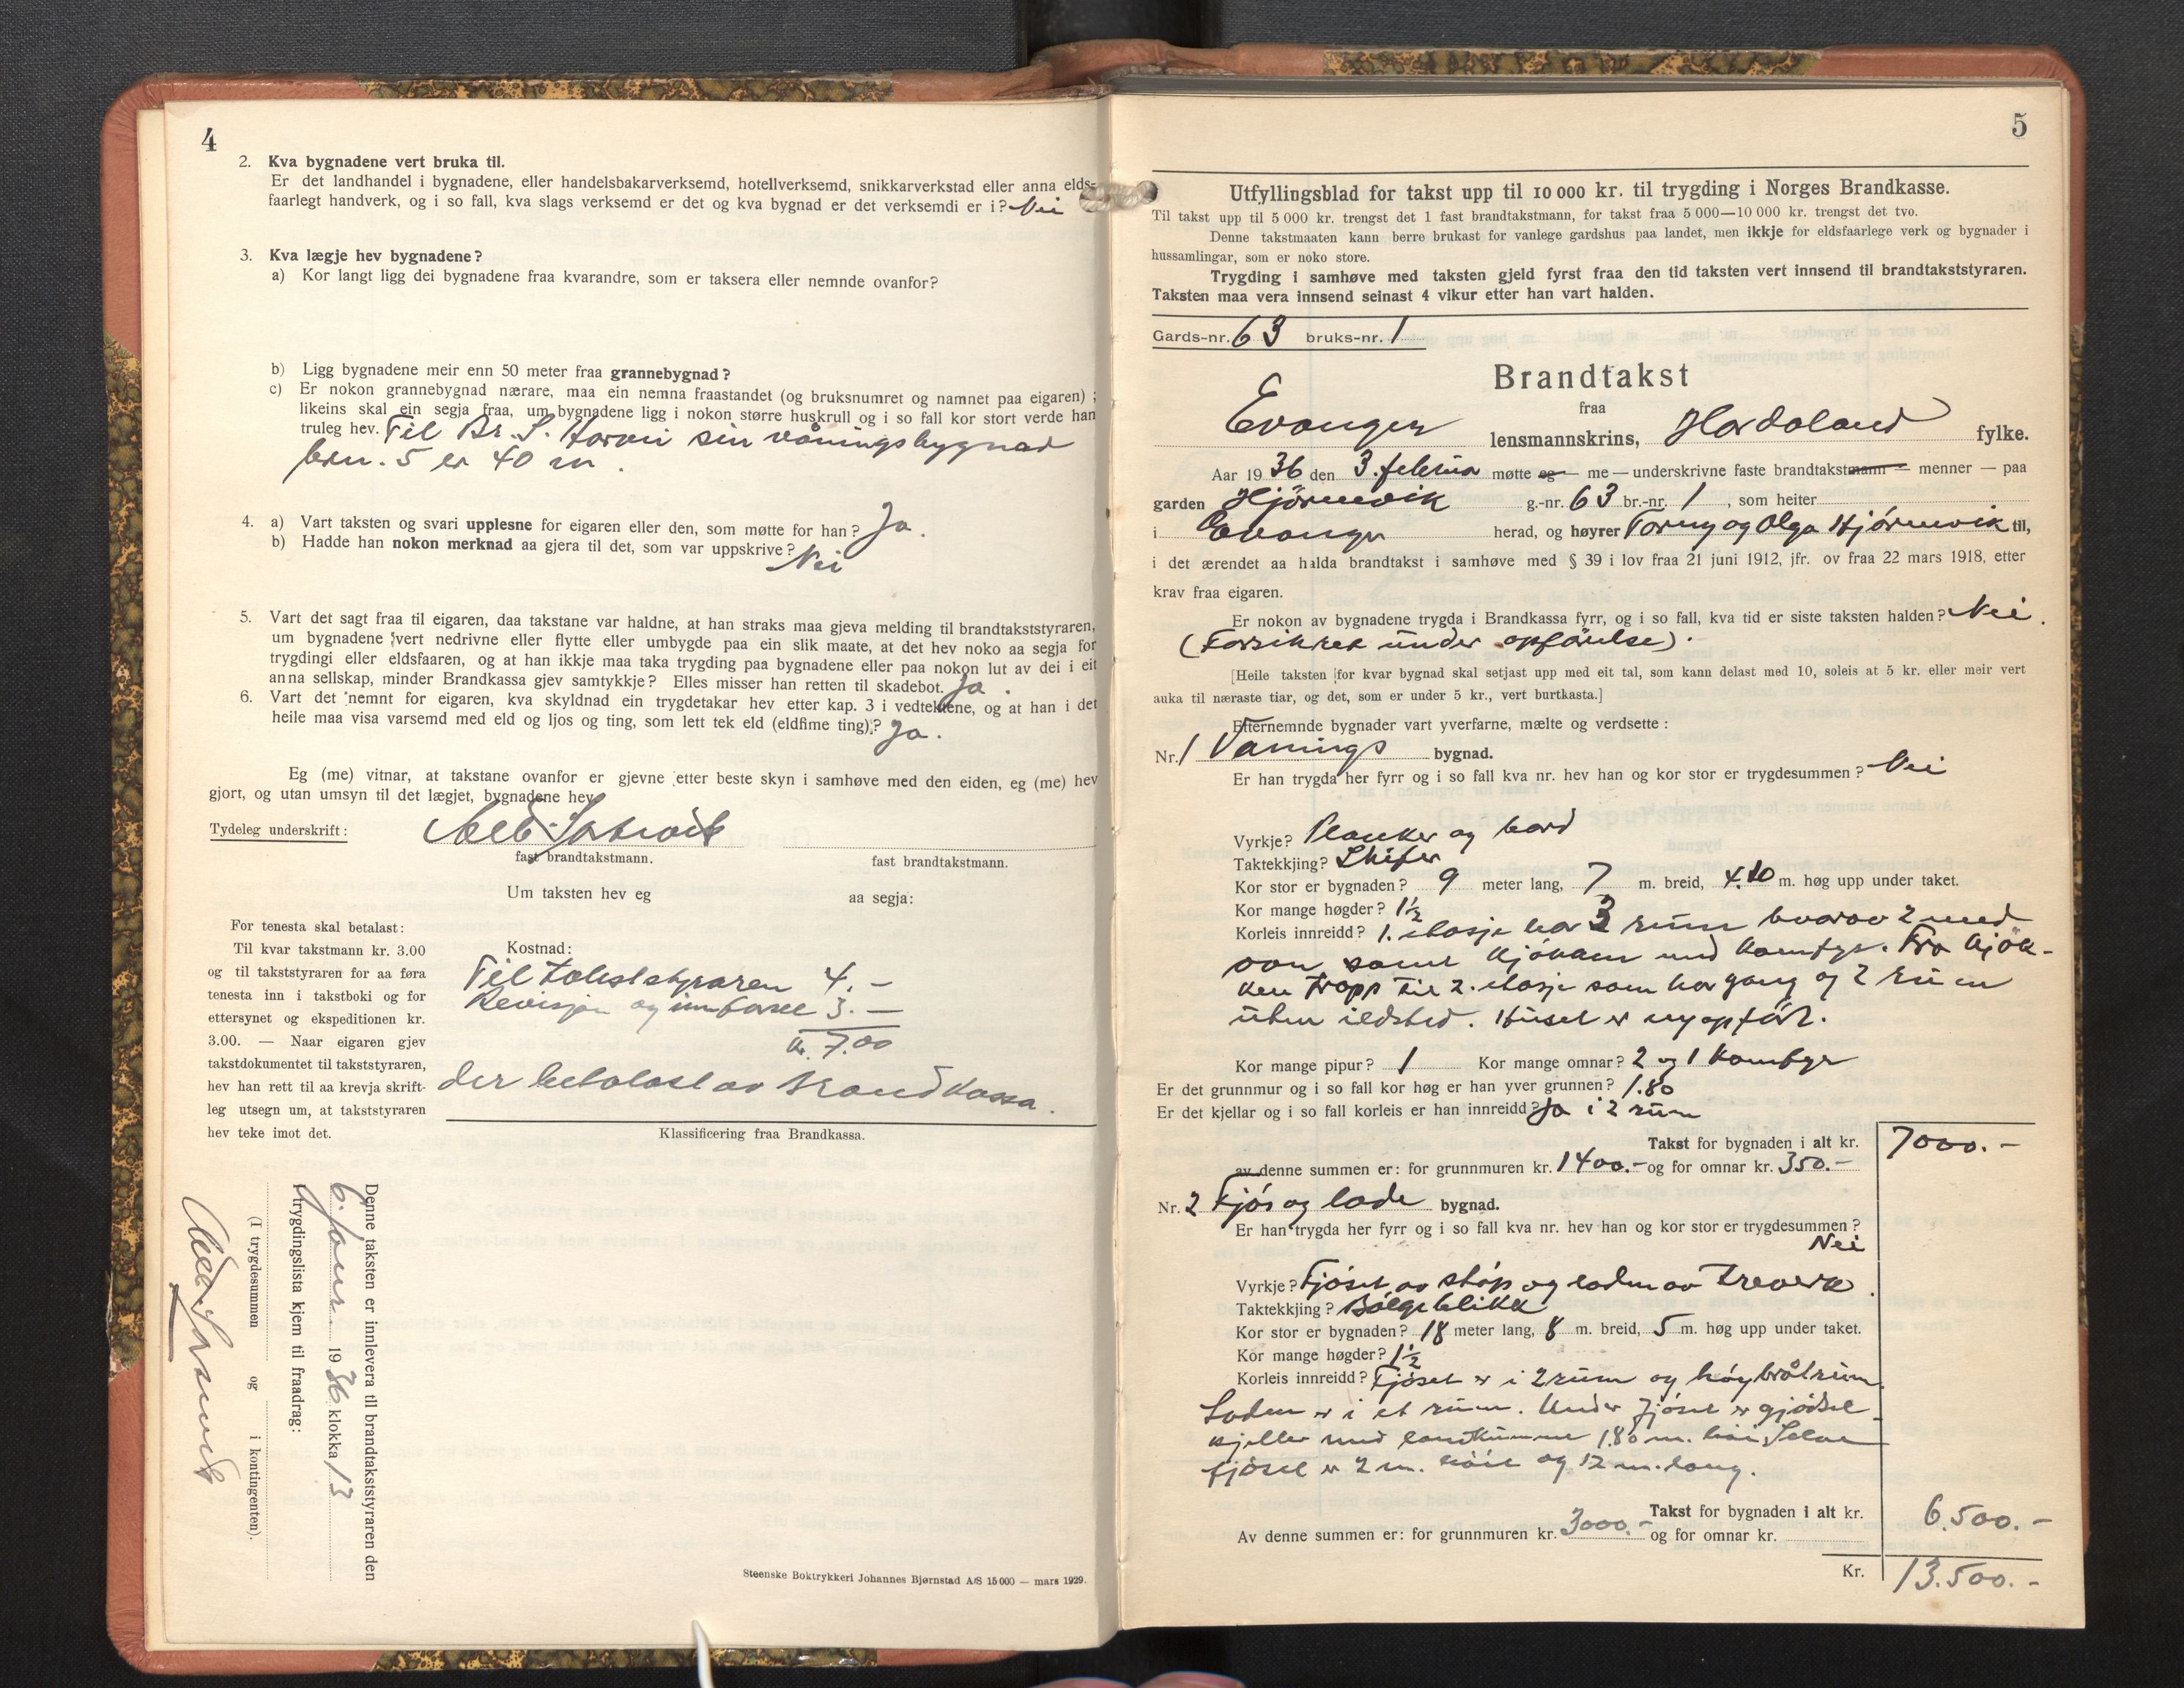 4
2. Kva bygnadene vert bruka til.
Er det landhandel i bygnadene, eller handelsbakarverksemd, hotellverksemd, snikkarverkstad eller anna elds-
faarlegt handverk, og i so fall, kva slags verksemd er det og kva bygnad er det verksemdi er i? Nei
3. Kva lægje hev bygnadene?
a) Kor langt ligg dei bygnadene fraa kvarandre, som er taksera eller nemnde ovanfor?
b) Ligg bygnadene meir enn 50 meter fraa grannebygnad?
c) Er nokon grannebygnad nærare, maa ein nemna fraastandet (og bruksnumret og namnet paa eigaren);
likeins skal ein segja fraa, um bygnadene ligg i nokon større huskrull og i so fall kor stort verde han
truleg hev. Til Br. S. Horvei sin våningsbygnad
brn. 5 er 40 m.
4. a) Vart taksten og svari upplesne for eigaren eller den, som møtte for han? Ja.
b) Hadde han nokon merknad aa gjera til det, som var uppskrive? Nei
5. Vart det sagt fraa til eigaren, daa takstane var haldne, at han straks maa gjeva melding til brandtakststyraren,
um bygnadene vert nedrivne eller flytte eller umbygde paa ein slik maate, at det hev noko aa segja for
trygdingi eller eldsfaaren, og at han ikkje maa taka trygding paa bygnadene eller paa nokon lut av dei i eit
anna sellskap, minder Brandkassa gjev samtykkje? Elles misser han retten til skadebot. Ja.
6. Vart det nemnt for eigaren, kva skyldnad ein trygdetakar hev etter kap. 3 i vedtektene, og at han i det
heile maa visa varsemd med eld og ljos og ting, som lett tek eld (eldfime ting)? Ja.
Eg (me) vitnar, at takstane ovanfor er gjevne etter beste skyn i samhøve med den eiden, eg (me) hev
gjort, og utan umsyn til det lægjet, bygnadene hev
Tydeleg underskrift:
fast brandtakstmann. fast brandtakstmann.
Um taksten hev eg aa segja:
For tenesta skal betalast:
Til kvar takstmann kr. 3.00
og til takststyraren for aa føra
tenesta inn i takstboki og for
ettersynet og ekspeditionen kr.
3.00. — Naar eigaren gjev
takstdokumentet til takststyraren,
hev han rett til aa krevja skrift-
leg utsegn um, at takststyraren
hev teke imot det.
Kostnad:
Til takststyraren 4.—
Revisjon og 3.—
kr. 7.00
der betalast av Brandkassa.
Klassificering fraa Brandkassa.
Denne taksten er innlevera til brandtakststyraren den
6. 1936 klokka 13
I trygdingslista kjem til fraadrag:
(I trygdesummen og i kontingenten).
Steenske Boktrykkeri Johannes Bjørnstad A/S 15000 — mars 1929.
5
Utfyllingsblad for takst upp til 10 000 kr. til trygding i Norges Brandkasse.
Til takst upp til 5 000 kr. trengst det 1 fast brandtakstmann, for takst fraa 5 000—10 000 kr. trengst det tvo.
Denne takstmaaten kann berre brukast for vanlege gardshus paa landet, men ikkje for eldsfaarlege verk og bygnader i
hussamlingar, som er noko store.
Trygding i samhøve med taksten gjeld fyrst fraa den tid taksten vert innsend til brandtakststyraren.
Taksten maa vera innsend seinast 4 vikur etter han vart halden.
Gards-nr. 63 bruks-nr. 1
Brandtakst
fraa
Evanger lensmannskrins, Hordaland fylke.
Aar 1936 den 3. februa møtte eg — me — underskrivne faste brandtakstmann — menner — paa
garden Hjørnevik g.-nr. 63 br.-nr. 1, som heiter
i Evanger herad, og høyrer Torny og Olga Hjørnevik til,
i det ærendet aa halda brandtakst i samhøve med § 39 i lov fraa 21 juni 1912, jfr. ov fraa 22 mars 1918, etter
krav fraa eigaren.
Er nokon av bygnadene trygda i Brandkassa fyrr, og i so fall, kva tid er siste taksten halden? Nei.
(Forsikret under opførelse).
[Heile taksten for kvar bygnad skal setjast upp med eit tal, som kann delast med 10, soleis at 5 kr. eller meir vert
auka til næraste tiar, og det, som er under 5 kr., vert burtkasta.]
Etternemnde bygnader vart yverfarne, mælte og verdsette:
Nr. 1 Vanings bygnad.
Er han trygda her fyrr og i so fall kva nr. hev han og kor stor er trygdesummen? Nei
Vyrkje? Planker og bord
Taktekkjing? Skifer
Kor stor er bygnaden? 9 meter lang, 7 m. breid, 4.10 m. høg upp under taket.
Kor mange høgder? 1½
Korleis innreidd? 1. etasje har 3 rum hvorav 2 med
ovn samt kjøkken med komfyr. Fra kjøk-
ken trapp til 2. etasje som har gang og 2 rum
uten ildsted. Huset er nyopført.
Kor mange pipur? 1 Kor mange omnar? 2 og 1 komfyr
Er det grunnmur og i so fall kor høg er han yver grunnen? 1.80
Er det kjellar og i so fall korleis er han innreidd? Ja i 2 rum
Takst for bygnaden i alt kr. 7000.—
av denne summen er: for grunnmuren kr. 1400.- og for omnar kr. 350.-
Nr. 2 Fjøs og lade bygnad.
Er han trygda her fyrr og i so fall kva nr. hev han og kor stor er trygdesummen?
Nei
Vyrkje? Fjøset av støp og laden av treverk.
Taktekkjing? Bølgeblikk
Kor stor er bygnaden? 18 meter lang, 8 m. breid, 5 m. høg upp under taket.
Kor mange høgder? 1½
Korleis innreidd? Fjøset er i 2 rum og
Laden er i et rum. Under fjøset er gjødsel-
kjeller med landkumme 1.80 m. høi Selve
fjøset er 2 m. høit og 12 m. lang.
Takst for bygnaden i alt kr. 6.500.—
Av denne summen er: for grunnmuren kr. 3000.- og for omnar kr.
Kr. 13.500.-